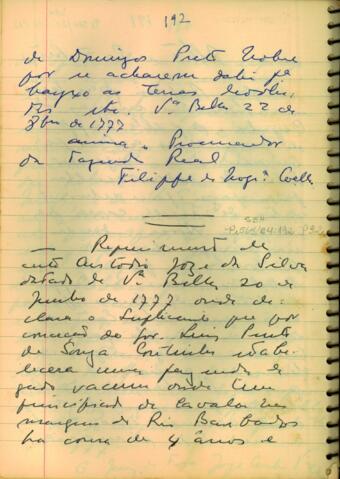 192
de Domingos Preto Nobre
por se acharem dahi pª
bayxo as terras
V.ª Bella 22 de
8bro de 1777
Procurador
da Fazenda Real
Filippe de Nogr.ª Coelho
Requeriment de
Custodio Joze da Silva
datado de V.ª Bella 20 de
Junho de 1777 onde de-
clara o Suplicante que por
do Luis Pinto
de Souza Coutinho estabe-
lecera uma fazenda de
gado vacum onde tem
principiado de cavalar nas
margens do Rio Barbados
ha cerca de 4 anos e